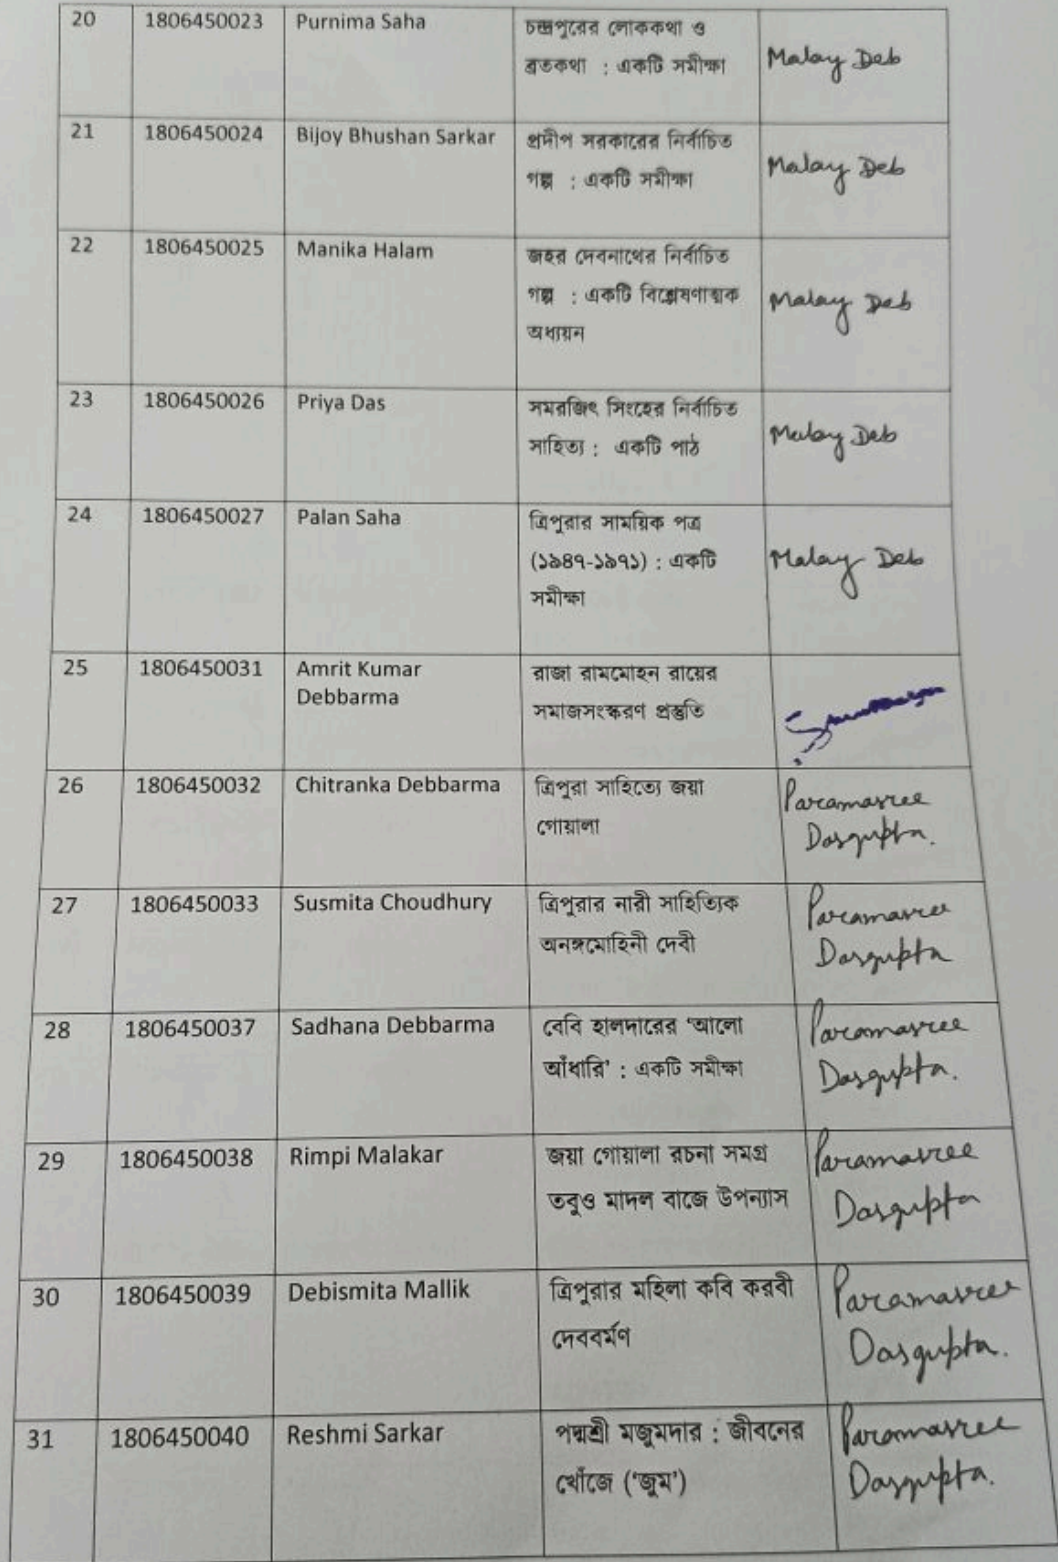 20 1806450023 Purnima Saha চন্দ্রপুরের লোককথা ও
ব্রতকথা : একটি সমীক্ষা Malay Deb
21 1806450024 Bijoy Bhushan Sarkar প্রদীপ সরকারের নির্বাচিত
গল্প : একটি সমীক্ষা Malay Deb
22 1806450025 Manika Halam জহর দেবনাথের নির্বাচিত
গল্প : একটি বিশ্লেষণাত্মক Malay Deb
অধ্যয়ন
23 1806450026 Priya Das সমরজিৎ সিংহের নির্বাচিত
সাহিত্য : একটি পাঠ Malay Deb
24 1806450027 Palan Saha ত্রিপুরার সাময়িক পত্র
(১৯৪৭-১৯৭১) : একটি Malay Deb
সমীক্ষা
25 1806450031 Amrit Kumar রাজা রামমোহন রায়ের
Debbarma সমাজসংস্করণ প্রস্তুতি
26 1806450032 Chitranka Debbarma ত্রিপুরা সাহিত্যে জয়া Paramasree
গোয়ালা Dasgupta.
27 1806450033 Susmita Choudhury ত্রিপুরার নারী সাহিত্যিক Paramasree
অনঙ্গমোহিনী দেবী Dasgupta
28 1806450037 Sadhana Debbarma বেবি হালদারের ‘আলো Paramasree
আঁধারি’ : একটি সমীক্ষা Dasgupta.
29 1806450038 Rimpi Malakar জয়া গোয়ালা রচনা সমগ্র Paramasree
তবুও মাদল বাজে উপন্যাস Dasgupta
30 1806450039 Debismita Mallik ত্রিপুরার মহিলা কবি করবী Paramasree
দেববর্মণ Dasgupta.
31 1806450040 Reshmi Sarkar পদ্মশ্রী মজুমদার : জীবনের Paramasree
খোঁজে (‘জুম’) Dasgupta.